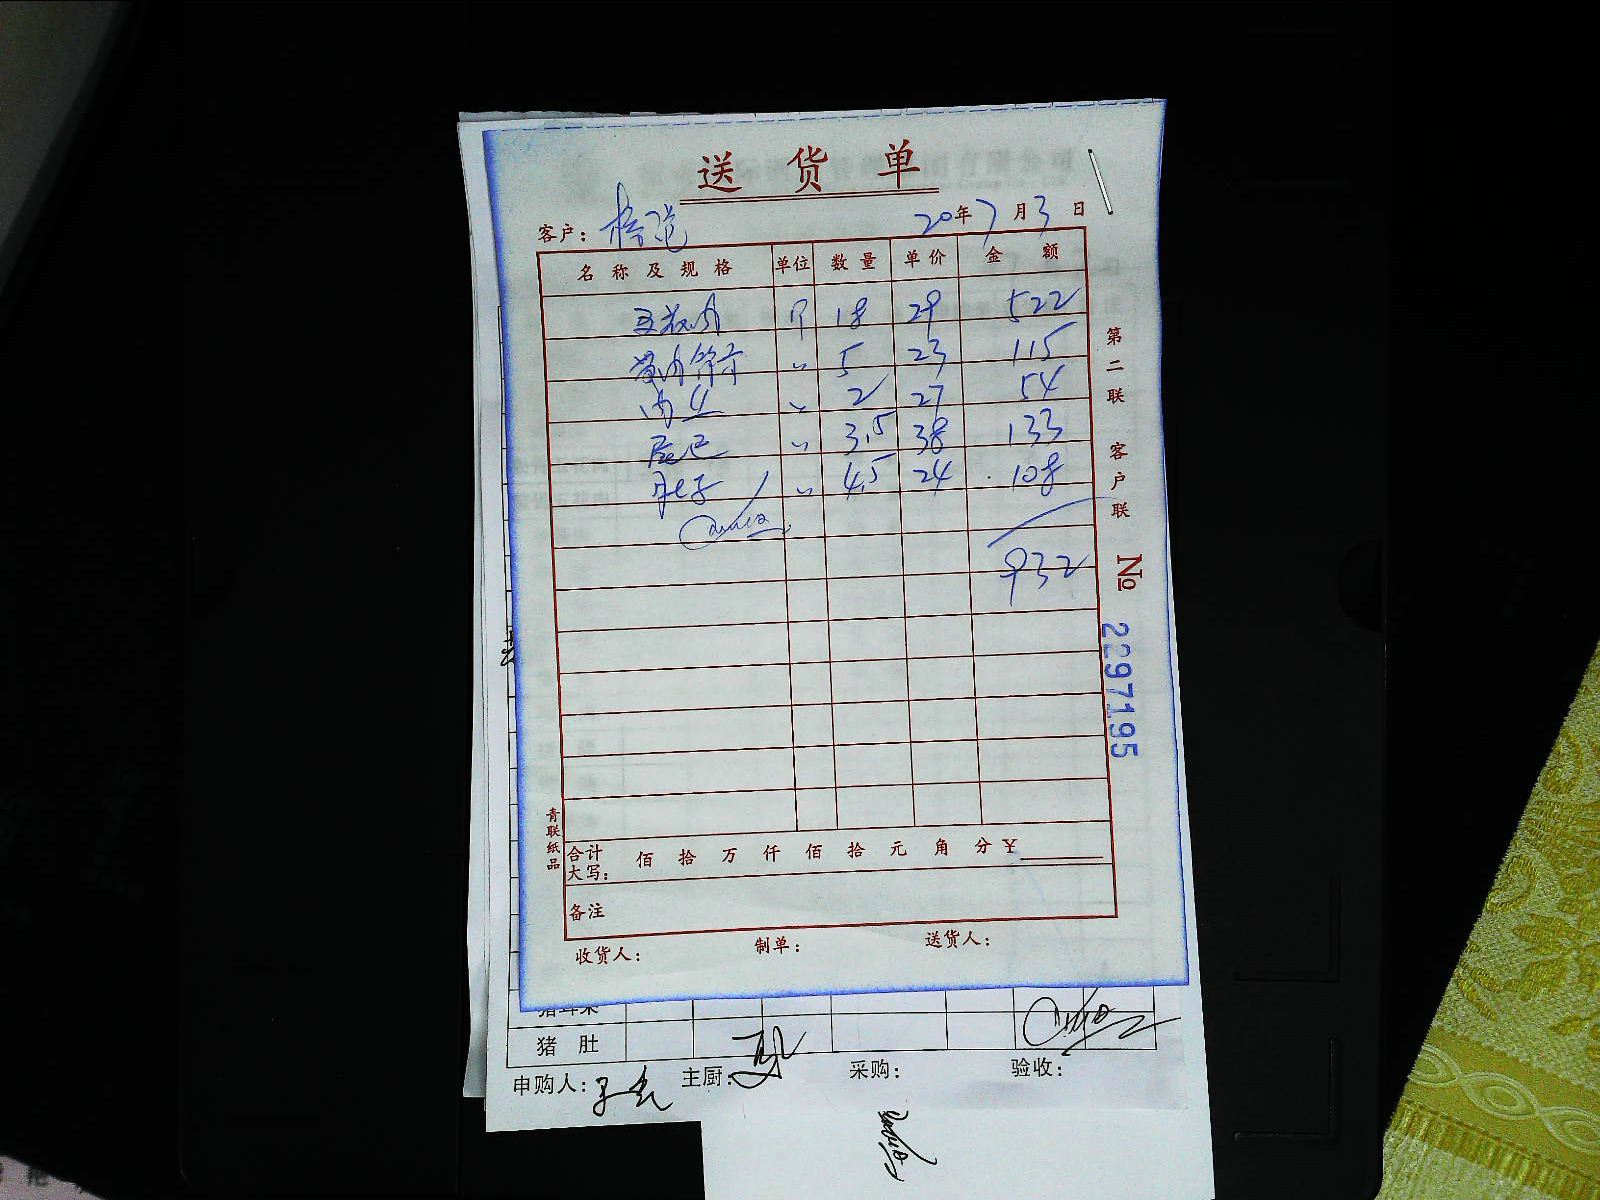 送 货 单
客户：
20年7月3日
名 称 及 规 格 单位 数量 单价 金 额
五花肉 斤 18 29 522
黄肉 〃 5 23 115
肉 〃 2 27 54
〃 3.5 38 133
肚子 〃 4.5 24 108
932
第二联 客户联
№ 2297195
青联纸品
合计大写： 佰 拾 万 仟 佰 拾 元 角 分 ¥
备注
收货人： 制单： 送货人：
猪 肚
申购人： 主厨： 采购： 验收：